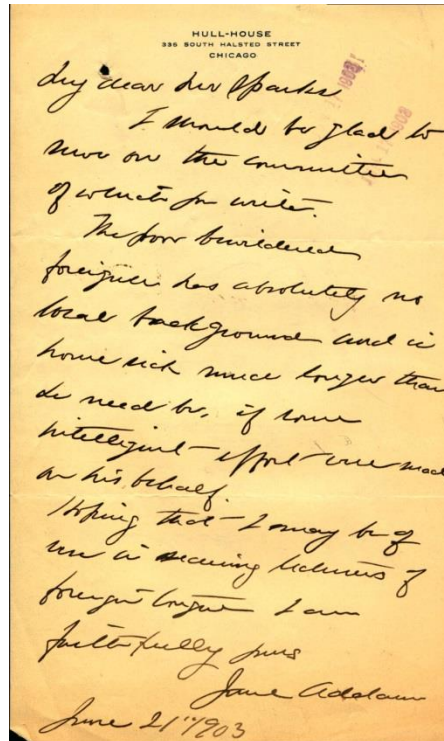 HULL-HOUSE
335 SOUTH HALSTED STREET
CHICAGO
My dear Mr Sparks
I should be glad to
serve on the committee
of which you write.
The poor bewildered
foreigner has absolutely no
local background and is
home sick much longer than
he need be, if some
intelligent effort were made
on his behalf.
Hoping that I may be of
use in securing lectures of
foreign tongue I am
faithfully yours
Jane Addams
June 21" 1903